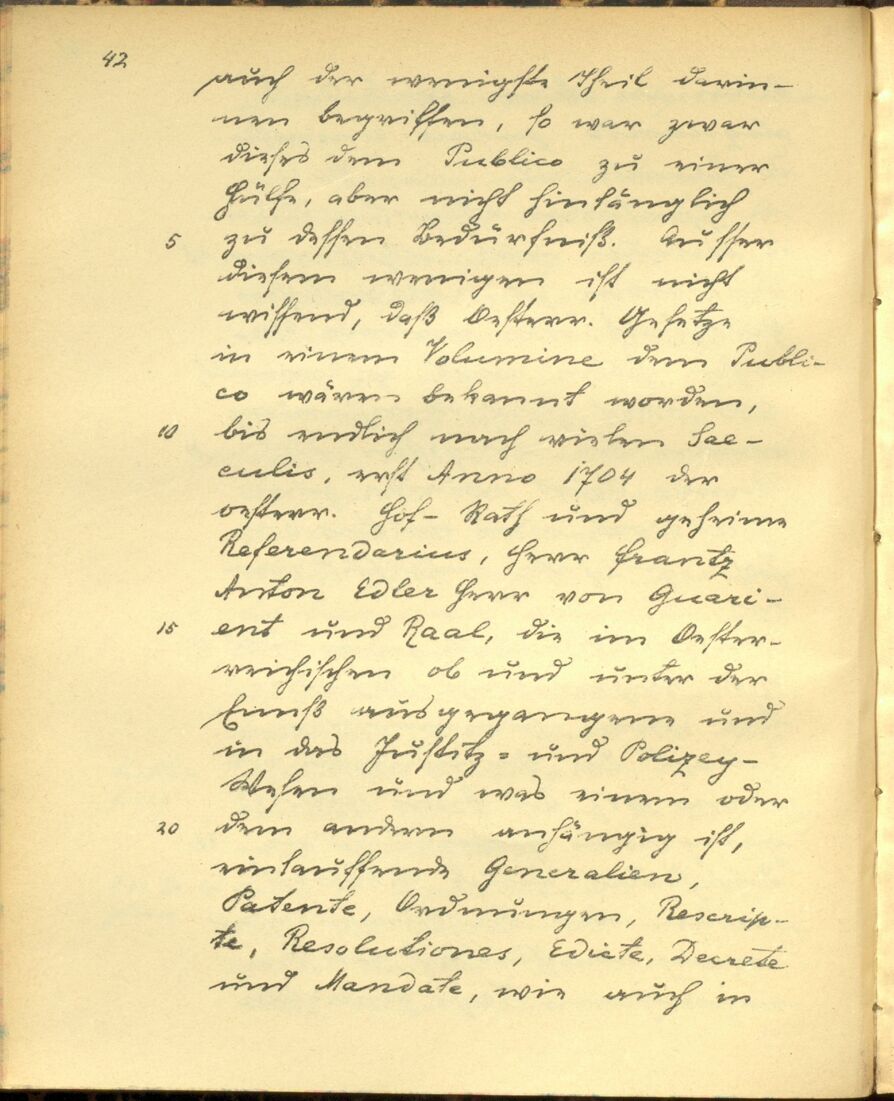 42
auch der wenigste Theil darin-
nen begriffen, so war zwar
dieses dem Publico zu einer
Hülfe, aber nicht hinlänglich
5 zu dessen Bedürfniß. Ausser
diesem wenigen ist nicht
wissend, daß Oesterr. Gesetze
in einem Volumine dem Publi-
co wären bekannt worden,
10 bis endlich nach vielen Sae-
culis, erst Anno 1704 der
oesterr. Hof- Rath und geheime
Referendarius, Herr Frantz
Anton Edler Herr von Guari-
15 ent und Raal, die im Oester-
reichischen ob und unter der
Ennß ausgegangene und
in das Justitz- und Polizey-
Wesen und was einem oder
20 dem andern anhängig ist,
einlauffende Generalien,
Patente, Ordnungen, Rescrip-
te, Resolutiones, Edicte, Decrete
und Mandate, wie auch in